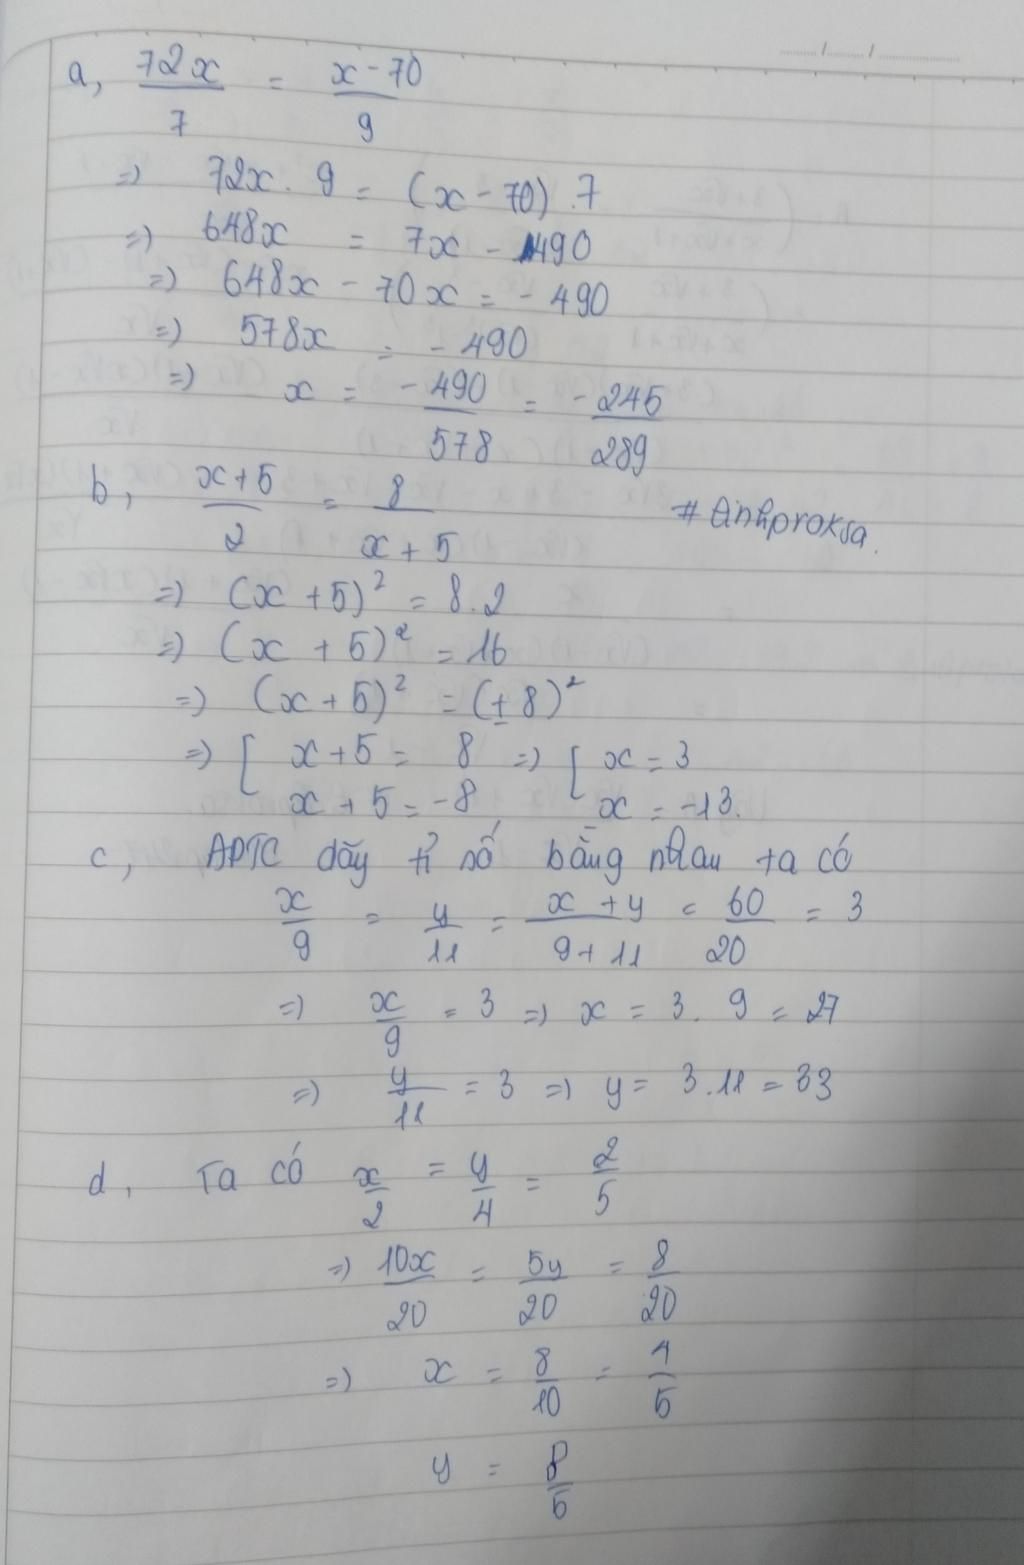 a, 72x/7 = x-70/9
=> 72x. 9 = (x-70).7
=> 648x = 7x - 490
=> 648x - 70x = -490
=> 578x = -490
=> x = -490/578 = -245/289
b, x+5/2 = 8/x+5
# @nhproksa.
=> (x+5)² = 8.2
=> (x+5)² = 16
=> (x+5)² = (±8)²
=> [ x+5 = 8 => [ x = 3
x+5 = -8 x = -13.
c, APTC dãy tỉ số bằng nhau ta có
x/9 = y/11 = x+y/9+11 = 60/20 = 3
=> x/9 = 3 => x = 3. 9 = 27
=> y/11 = 3 => y = 3.11 = 33
d, Ta có x/2 = y/4 = 2/5
=> 10x/20 = 5y/20 = 8/20
=> x = 8/10 = 4/5
y = 8/5